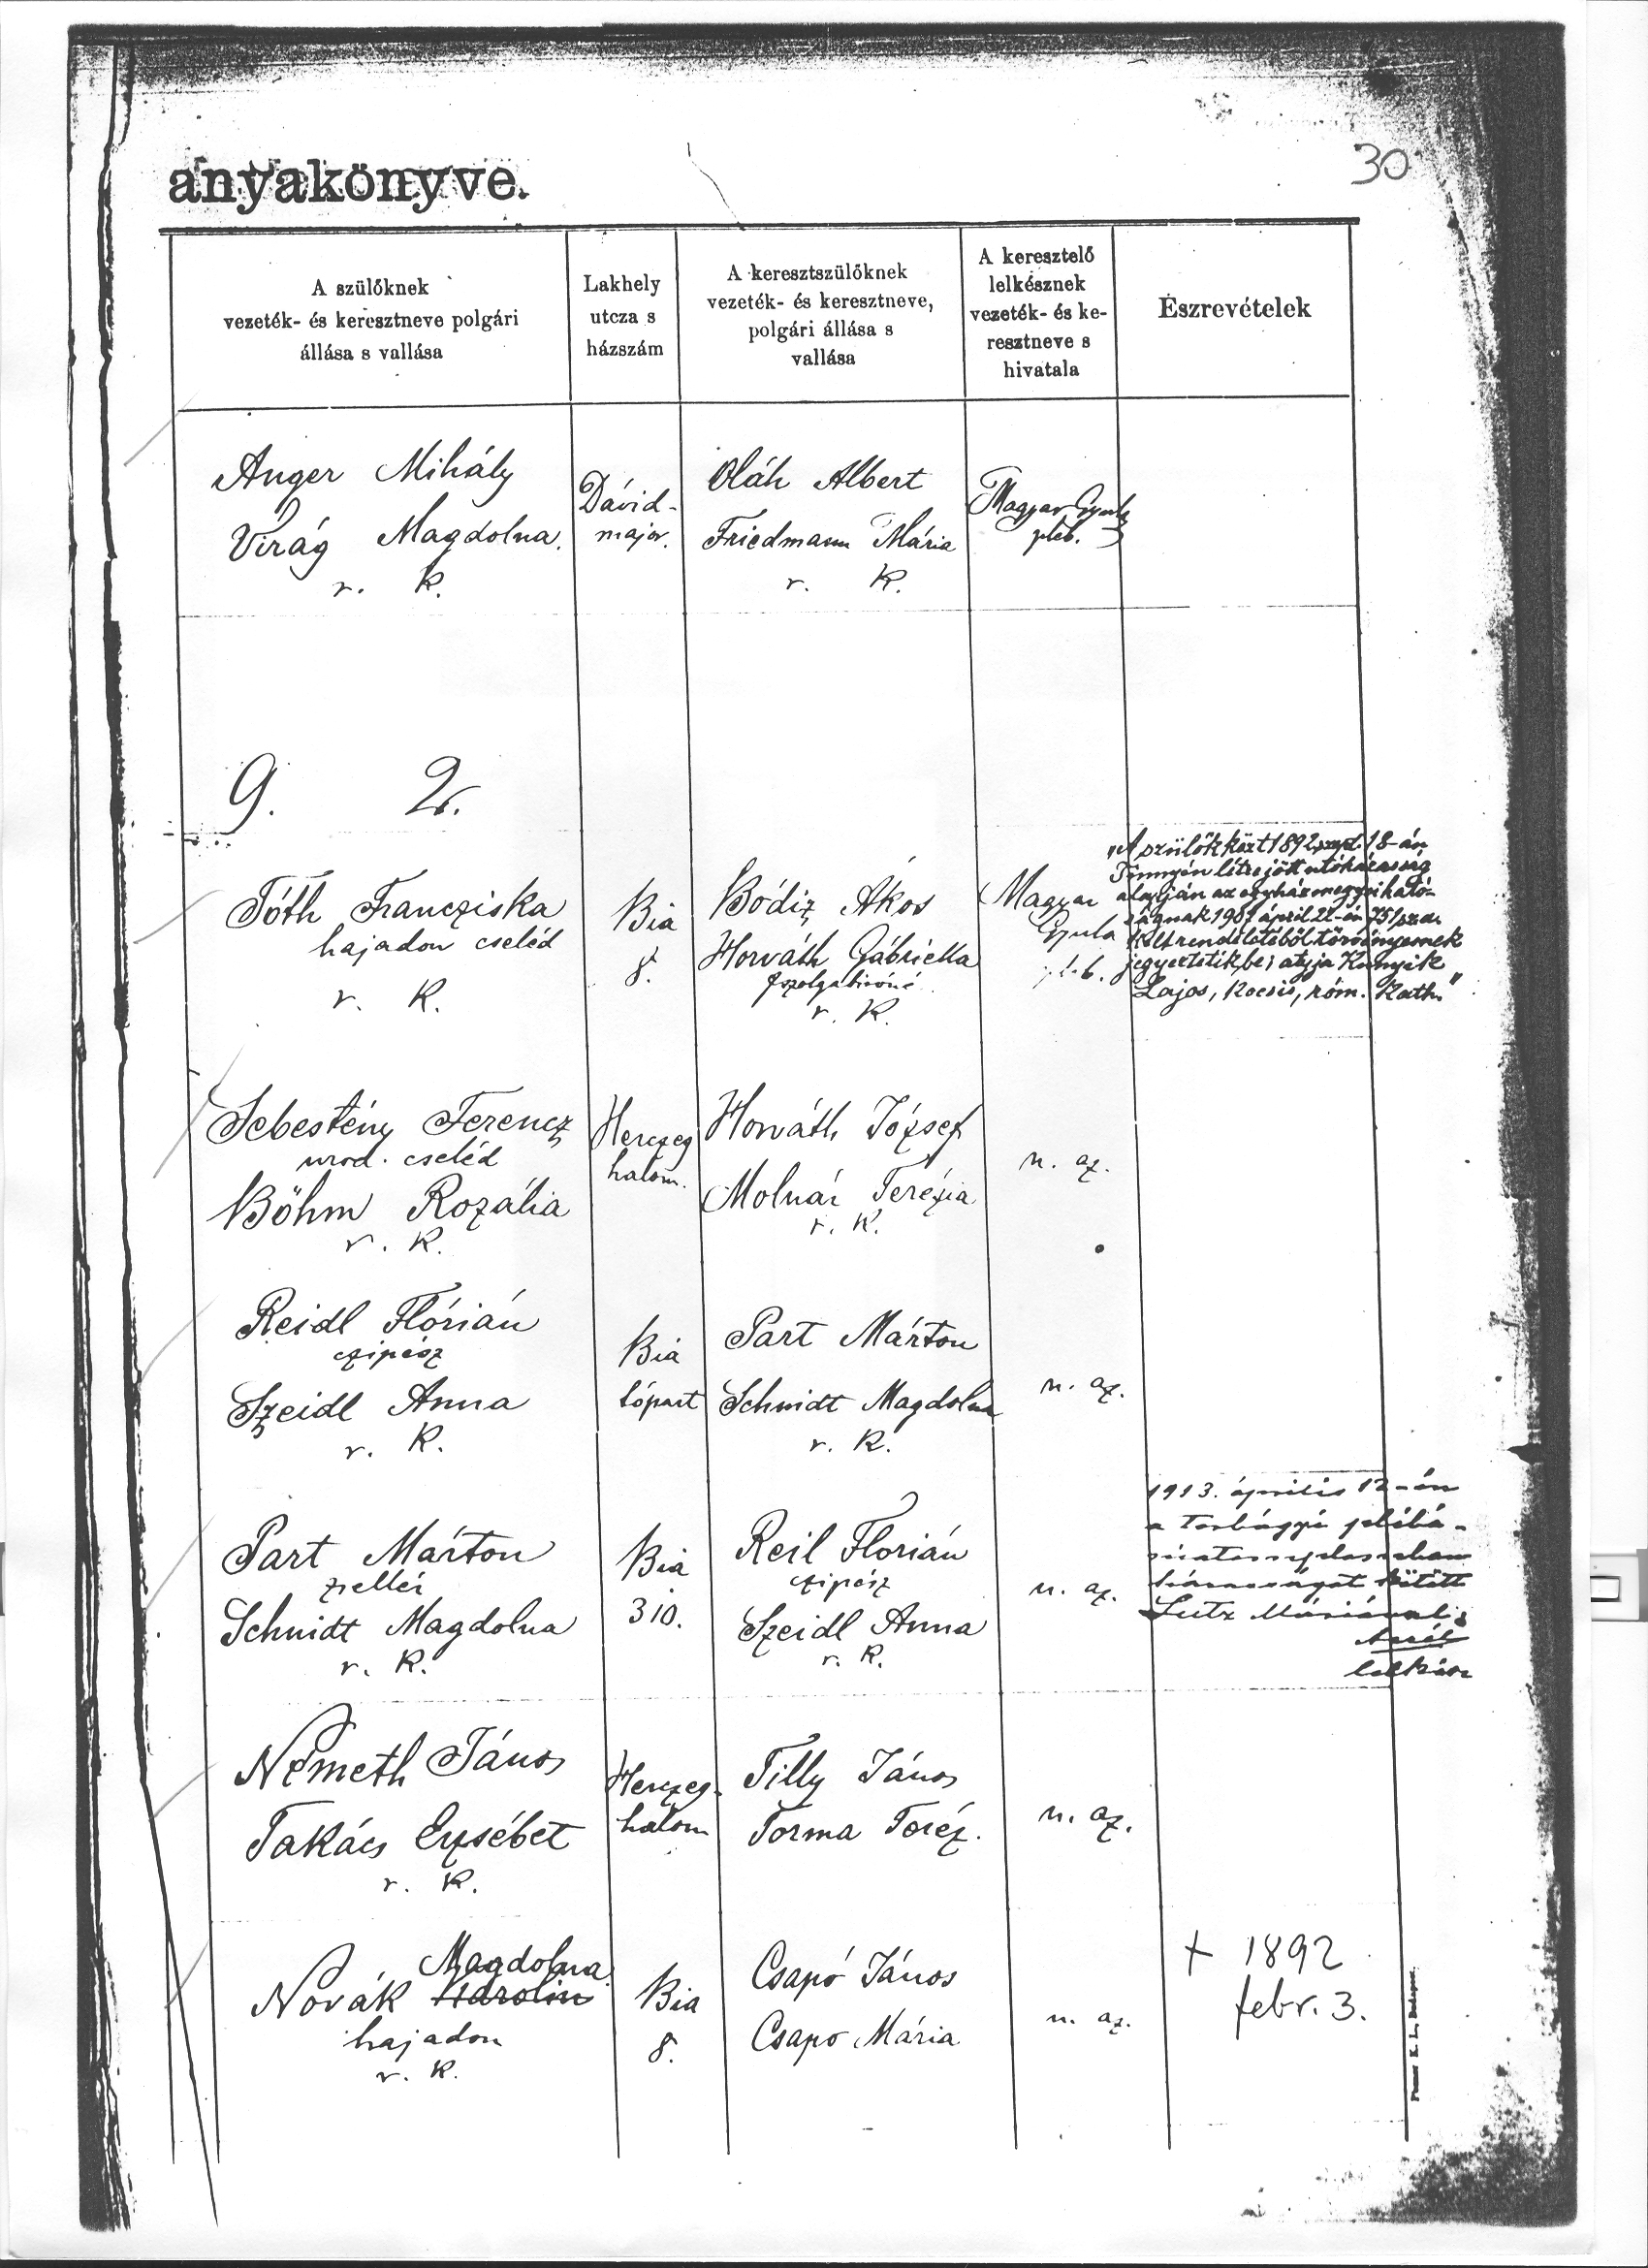 anyakönyve.
30
A szülőknek
vezeték- és keresztneve polgári
állása s vallása
Lakhely
utcza s
házszám
A keresztszülőknek
vezeték- és keresztneve,
polgári állása s
vallása
A keresztelő
lelkésznek
vezeték- és ke-
resztneve s
hivatala
Észrevételek
Anger Mihály
Virág Magdolna.
r. k.
Dávid-
major.
Oláh Albert
Friedmann Mária
r. k.
Magyar Gyula
pleb.
9. 2.
Tóth Francziska
hajadon cseléd
r. k.
Bia
8.
Bódiz Ákos
Horváth Gábriella
fszolgabiróné
r. k.
Magyar
Gyula
pleb.
„A szülők közt 1892 szept. 18-án
Tinnyén létrejött utóházasság
alapján az egyházmegyei ható-
ságnak 1901 április 22-én 751 szám
kelt rendeletéből törvényesnek
jegyeztetik be; atyja Kunyik
Lajos, kocsis, róm. kath."
Sebestény Ferencz
urod. cseléd
Böhm Rozália
r. k.
Herczeg
halom.
Horváth József
Molnár Terézia
r. k.
u. az.
Reidl Flórián
czipész
Szeidl Anna
r. k.
Bia
tópart
Part Márton
Schmidt Magdolna
r. k.
u. az.
Part Márton
zsellér
Schmidt Magdolna
r. k.
Bia
310.
Reil Florián
czipész
Szeidl Anna
r. k.
u. az.
1913. április 12-én
a torbágyi plébá-
házasságot kötött
Lutz Máriával;
lelkész
Németh János
Takács Erzsébet
r. k.
Herczeg-
halom
Tilly János
Torma Teréz.
u. az.
Magdolna
Novák Karolin
hajadon
r. k.
Bia
8.
Csapó János
Csapo Mária
u. az.
+ 1892
febr. 3.